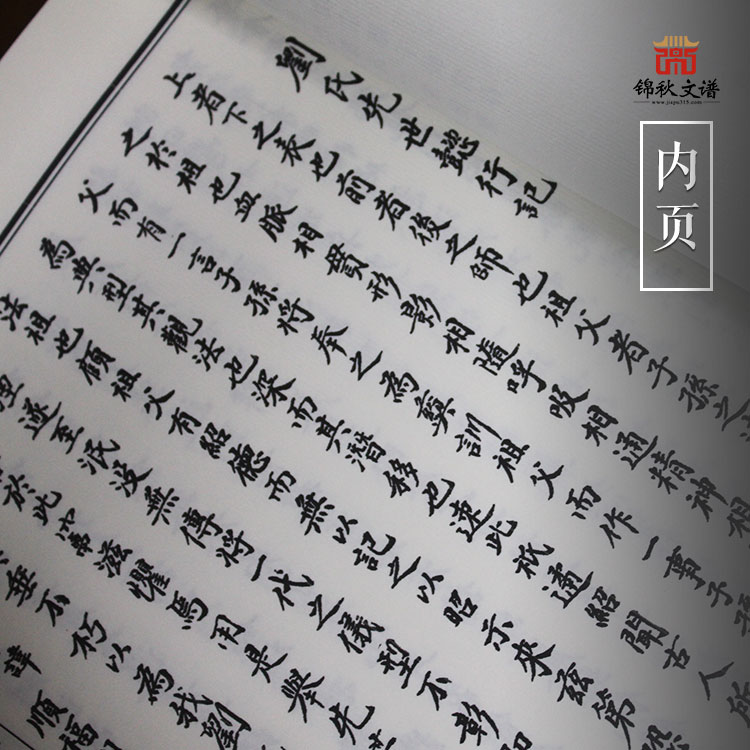 锦秋文谱
www.jiapu315.com
内页
劉氏先世懿行記
上者下之表也前者後之師也祖父者子孫之
之於祖也血脈相貫形影相隨呼吸相通精神相
父而有一言子孫將奉之為彝訓祖父而作一子孫
為典型其觀法也深而其潛移也速此祇遹紹聞古人所
法祖也顧祖父有紹德而無以記之以昭示來茲第恐
湮遂至泯没無傳將一代之儀型不彰
於此常滋懼焉用是舉先世
垂不朽以為我劉
諱順福